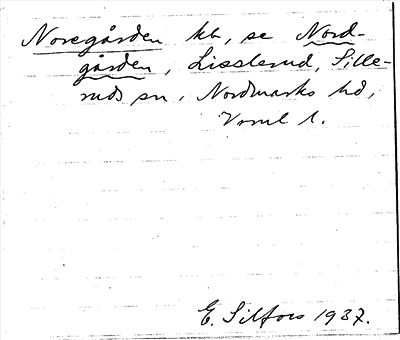 Noregården hb, se Nord-
gården, Lisslerud, Sille-
ruds sn, Nordmarks hd,
Vrml l.
E. Silfors 1937.